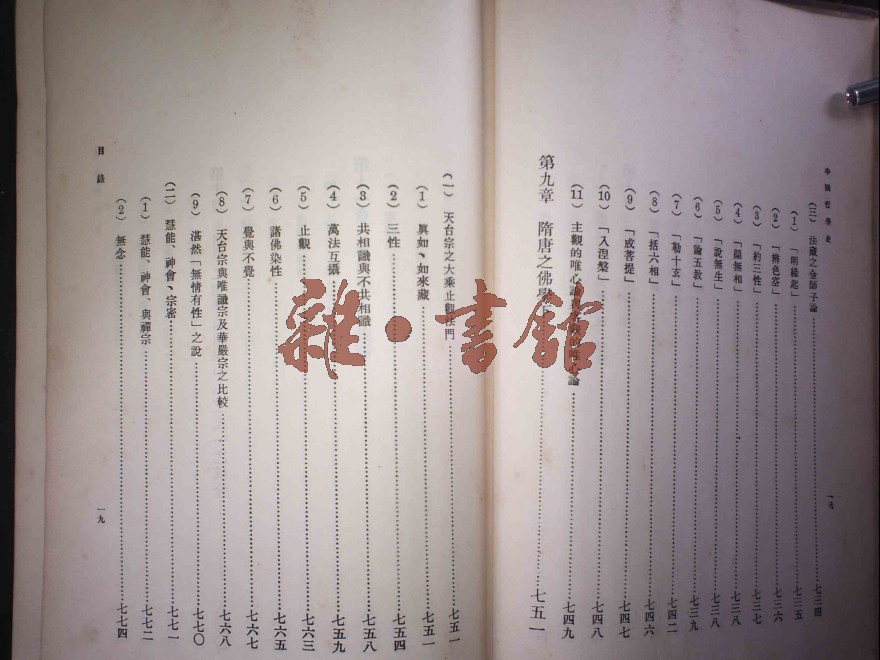 中國哲學史
一八
(三) 法藏之金師子論……七三四
(1)「明緣起」……七三五
(2)「辨色空」……七三六
(3)「約三性」……七三七
(4)「顯無相」……七三八
(5)「說無生」……七三八
(6)「論五教」……七三九
(7)「勒十玄」……七四二
(8)「括六相」……七四六
(9)「成菩提」……七四七
(10)「入涅槃」……七四八
(11) 主觀的唯心論與客觀的唯心論……七四九
第九章 隋唐之佛學下……七五一
(一) 天台宗之大乘止觀法門……七五一
(1) 眞如、如來藏……七五一
(2) 三性……七五四
(3) 共相識與不共相識……七五八
(4) 萬法互攝……七五九
(5) 止觀……七六三
(6) 諸佛染性……七六五
(7) 覺與不覺……七六七
(8) 天台宗與唯識宗及華嚴宗之比較……七六八
(9) 湛然「無情有性」之說……七七〇
(二) 慧能、神會、宗密……七七一
(1) 慧能、神會、與禪宗……七七二
(2) 無念……七七四
目錄
一九
雜·書館